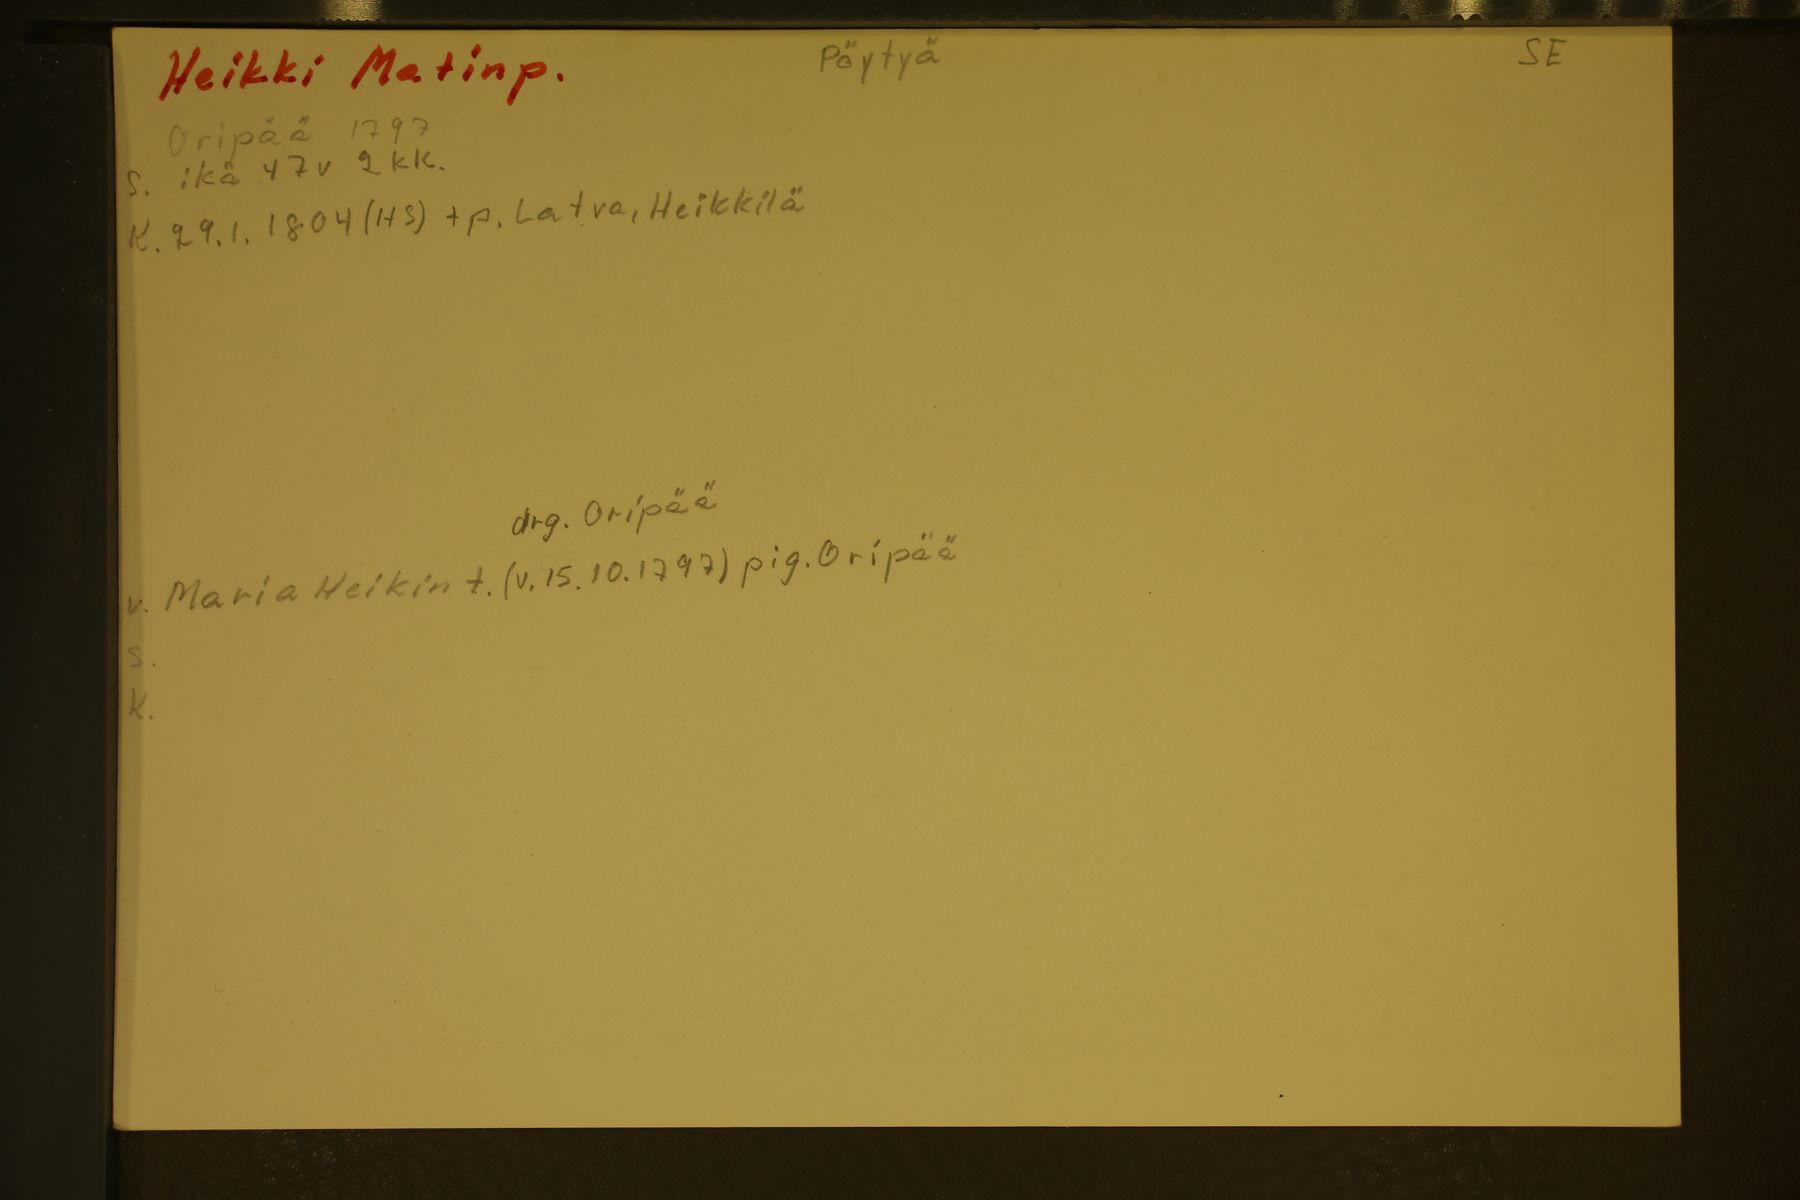 Heikki Matinp. Pöytyä SE
Oripää 1797
s. ikä 47v 2kk.
K. 29.1.1804 (HS) tp. Latva, Heikkilä
drg. Oripää
v. Maria Heikint. (v. 15.10.1797) pig. Oripää
s.
K.